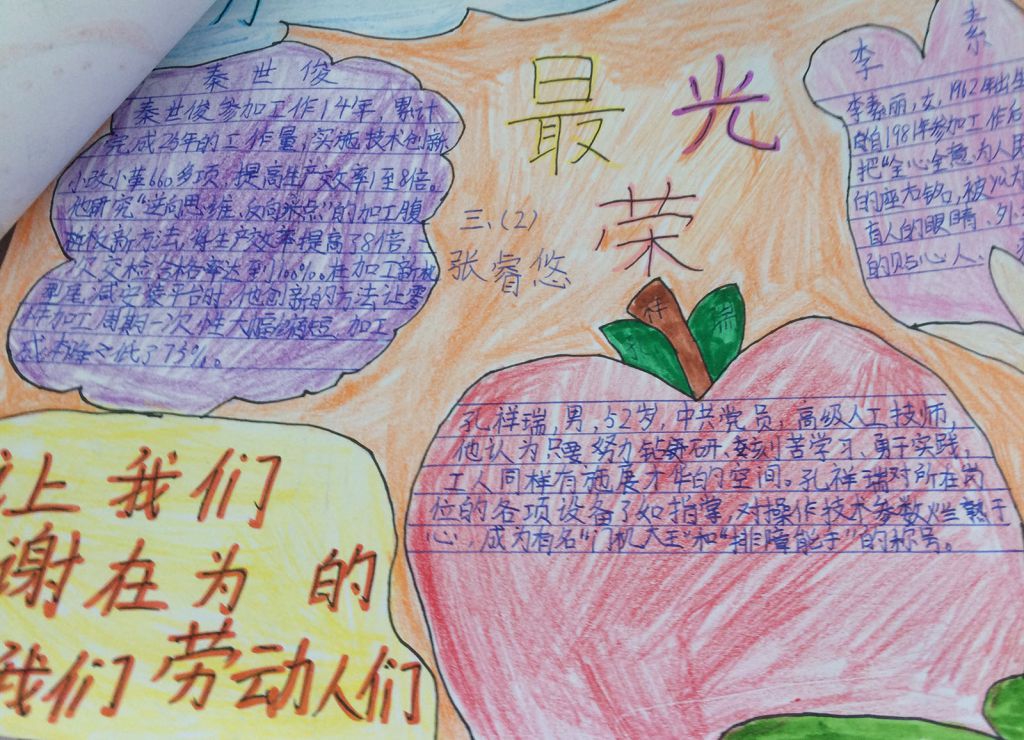 秦世俊
秦世俊参加工作14年,累计
完成25年的工作量,实施技术创新、
小改小革660多项,提高生产效率1至8倍。
他研究“逆向思维、反向求点”的加工腹
板新方法,将生产效率提高了8倍,一
次交检合格率达到100%。在加工新机
型尾减安装平台时,他创新的方法让零
件加工周期一次性大幅缩短,加工
成本降低了75%。
最光
荣
三、(2)
张睿悠
李素
李素丽,女,1962年出生
自1981年参加工作后
把“全心全意为人民
的座右铭,被
盲人的眼睛、外
的贴心人。
孔祥瑞
孔祥瑞,男,52岁,中共党员,高级人工技师,
他认为只要努力钻研,刻苦学习、勇于实践,
工人同样有施展才华的空间。孔祥瑞对所在岗
位的各项设备了如指掌,对操作技术参数烂熟于
心,成为有名“门机大王”和“排障能手”的称号。
让我们
谢在为的
我们劳动人们